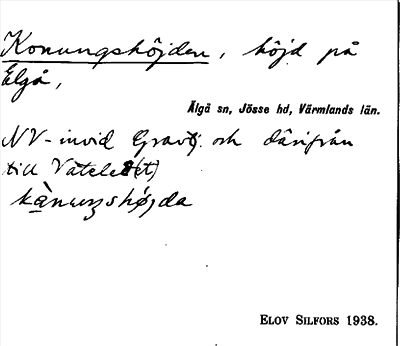 Konungshöjden, höjd på
Elgå,
Älgå sn, Jösse hd, Värmlands län.
NV-invid Gravsj. och därifrån
till Vätele(t)
kànuŋshǿjda
ELOV SILFORS 1938.